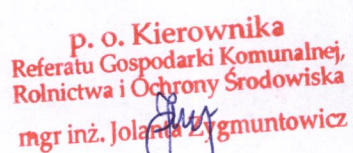 p. o. Kierownika
Referatu Gospodarki Komunalnej,
Rolnictwa i Ochrony Środowiska
mgr inż. Jolanta Zygmuntowicz